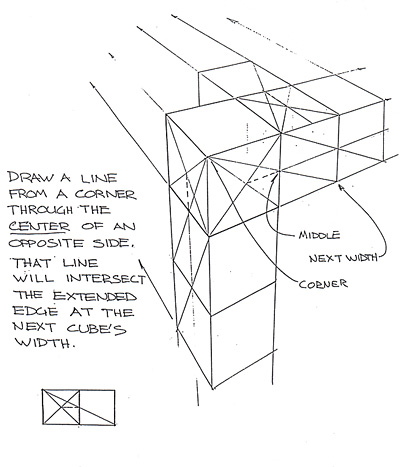 DRAW A LINE
FROM A CORNER
THROUGH THE
CENTER OF AN
OPPOSITE SIDE.
THAT LINE
WILL INTERSECT
THE EXTENDED
EDGE AT THE
NEXT CUBE'S
WIDTH.
MIDDLE
NEXT WIDTH
CORNER